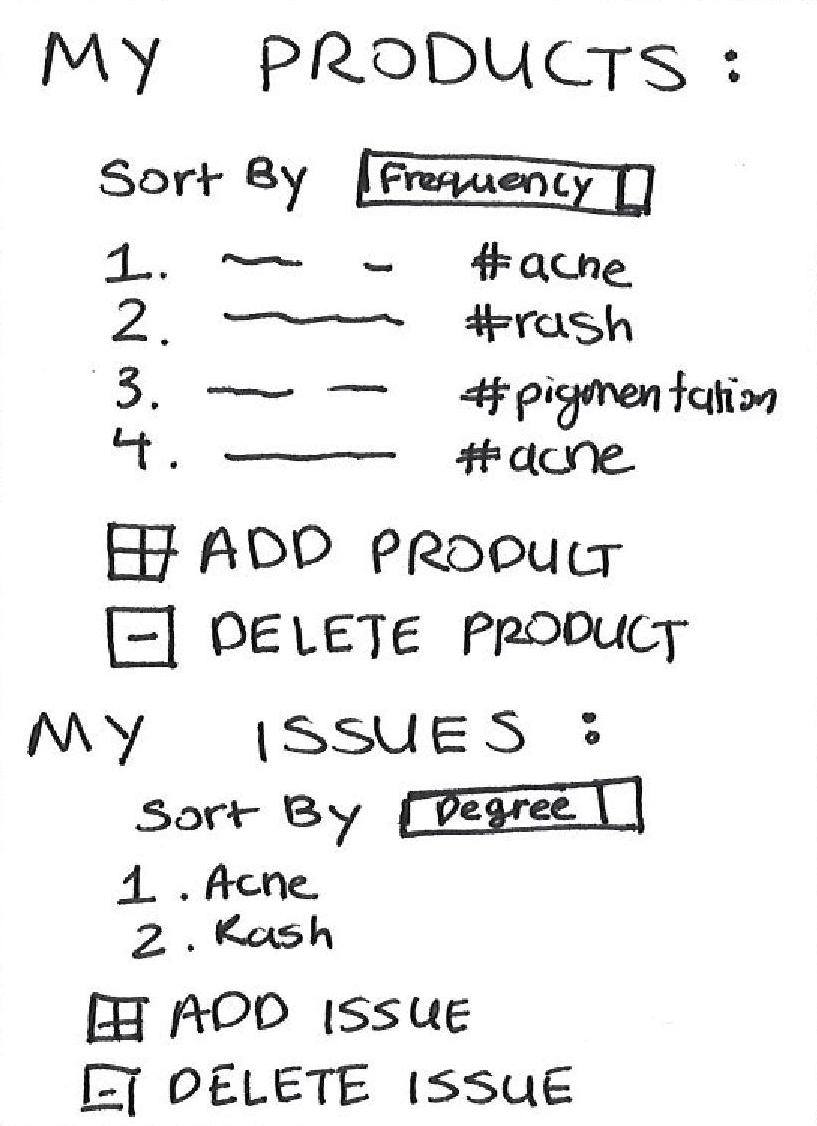 MY PRODUCTS:
Sort By Frequency
1. #acne
2. #rash
3. #pigmentation
4. #acne
ADD PRODUCT
DELETE PRODUCT
MY ISSUES:
Sort By Degree
1. Acne
2. Rash
ADD ISSUE
DELETE ISSUE